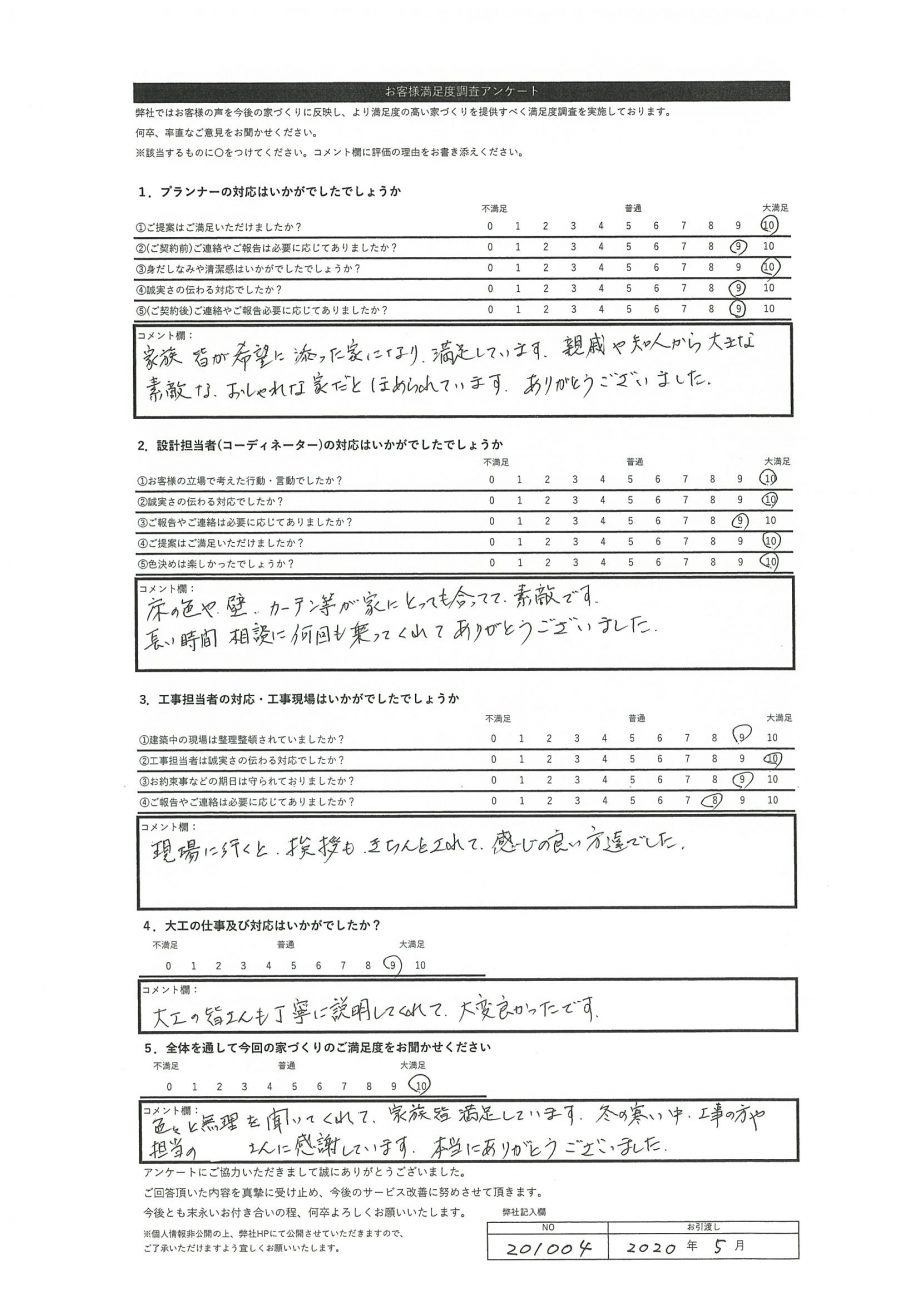 お客様満足度調査アンケート
弊社ではお客様の声を今後の家づくりに反映し、より満足度の高い家づくりを提供すべく満足度調査を実施しております。
何卒、率直なご意見をお聞かせください。
※該当するものに〇をつけてください。コメント欄に評価の理由をお書き添えください。
1．プランナーの対応はいかがでしたでしょうか
不満足 普通 大満足
①ご提案はご満足いただけましたか？ 0 1 2 3 4 5 6 7 8 9 10
②(ご契約前)ご連絡やご報告は必要に応じてありましたか？ 0 1 2 3 4 5 6 7 8 9 10
③身だしなみや清潔感はいかがでしたでしょうか？ 0 1 2 3 4 5 6 7 8 9 10
④誠実さの伝わる対応でしたか？ 0 1 2 3 4 5 6 7 8 9 10
⑤(ご契約後)ご連絡やご報告必要に応じてありましたか？ 0 1 2 3 4 5 6 7 8 9 10
コメント欄：
家族 皆が希望に添った家になり、満足しています。親戚や知人から大きな
素敵な、おしゃれな家だと ほめられています。ありがとうございました。
2．設計担当者(コーディネーター)の対応はいかがでしたでしょうか
不満足 普通 大満足
①お客様の立場で考えた行動・言動でしたか？ 0 1 2 3 4 5 6 7 8 9 10
②誠実さの伝わる対応でしたか？ 0 1 2 3 4 5 6 7 8 9 10
③ご報告やご連絡は必要に応じてありましたか？ 0 1 2 3 4 5 6 7 8 9 10
④ご提案はご満足いただけましたか？ 0 1 2 3 4 5 6 7 8 9 10
⑤色決めは楽しかったでしょうか？ 0 1 2 3 4 5 6 7 8 9 10
コメント欄：
床の色や、壁、カーテン等が家にとっても合ってて、素敵です。
長い時間 相談に何回も乗ってくれて ありがとうございました。
3．工事担当者の対応・工事現場はいかがでしたでしょうか
不満足 普通 大満足
①建築中の現場は整理整頓されていましたか？ 0 1 2 3 4 5 6 7 8 9 10
②工事担当者は誠実さの伝わる対応でしたか？ 0 1 2 3 4 5 6 7 8 9 10
③お約束事などの期日は守られておりましたか？ 0 1 2 3 4 5 6 7 8 9 10
④ご報告やご連絡は必要に応じてありましたか？ 0 1 2 3 4 5 6 7 8 9 10
コメント欄：
現場に行くと、挨拶も、きちんとされて、感じの良い方達でした。
4．大工の仕事及び対応はいかがでしたか？
不満足 普通 大満足
0 1 2 3 4 5 6 7 8 9 10
コメント欄：
大工の皆さんも丁寧に説明してくれて、大変良かったです。
5．全体を通して今回の家づくりのご満足度をお聞かせください
不満足 普通 大満足
0 1 2 3 4 5 6 7 8 9 10
コメント欄：
色々と無理を聞いてくれて、家族皆 満足しています。冬の寒い中、工事の方や
担当の さんに感謝しています。本当にありがとうございました。
アンケートにご協力いただきまして誠にありがとうございました。
ご回答頂いた内容を真摯に受け止め、今後のサービス改善に努めさせて頂きます。
今後とも末永いお付き合いの程、何卒よろしくお願いいたします。
※個人情報非公開の上、弊社HPにて公開させていただきますので、
ご了承いただけますよう宜しくお願いいたします。
弊社記入欄
NO お引渡し
201004 2020 年 5 月